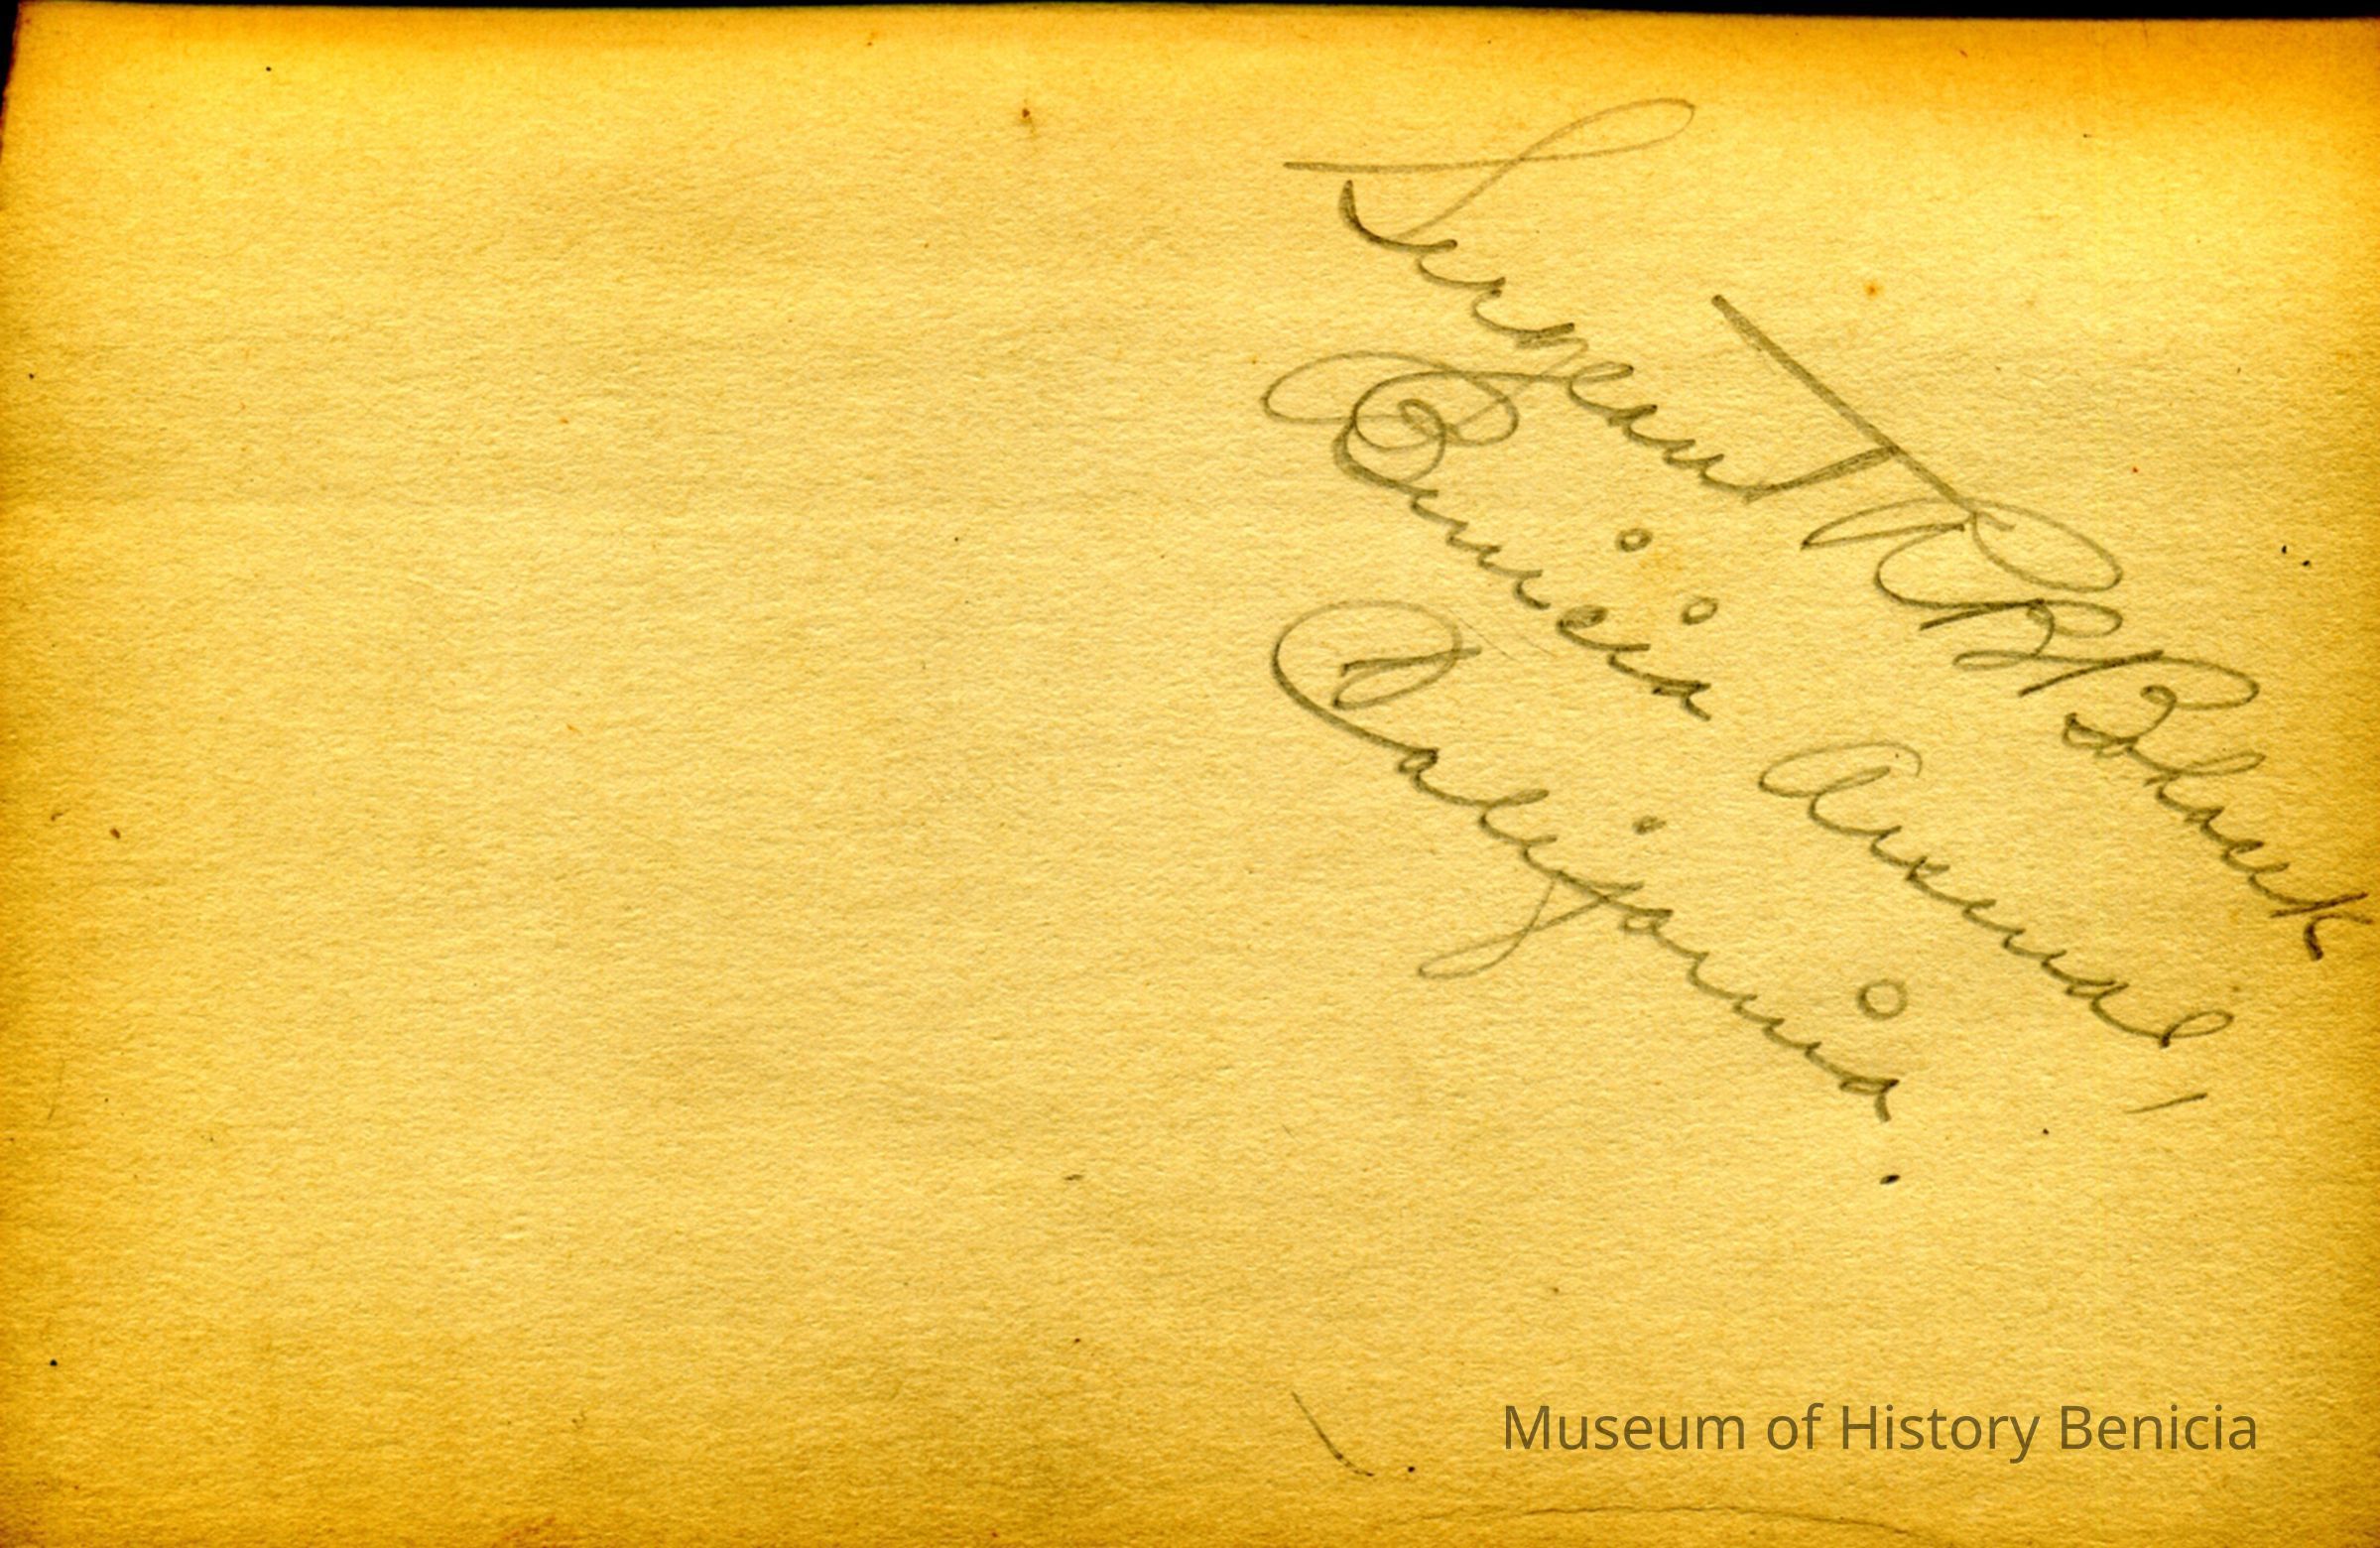 Sergeant R B
Benicia Arsenal,
California.
Museum of History Benicia